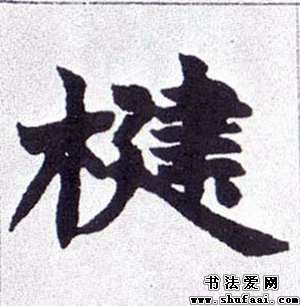 楗
书法爱网
www.shufaai.com